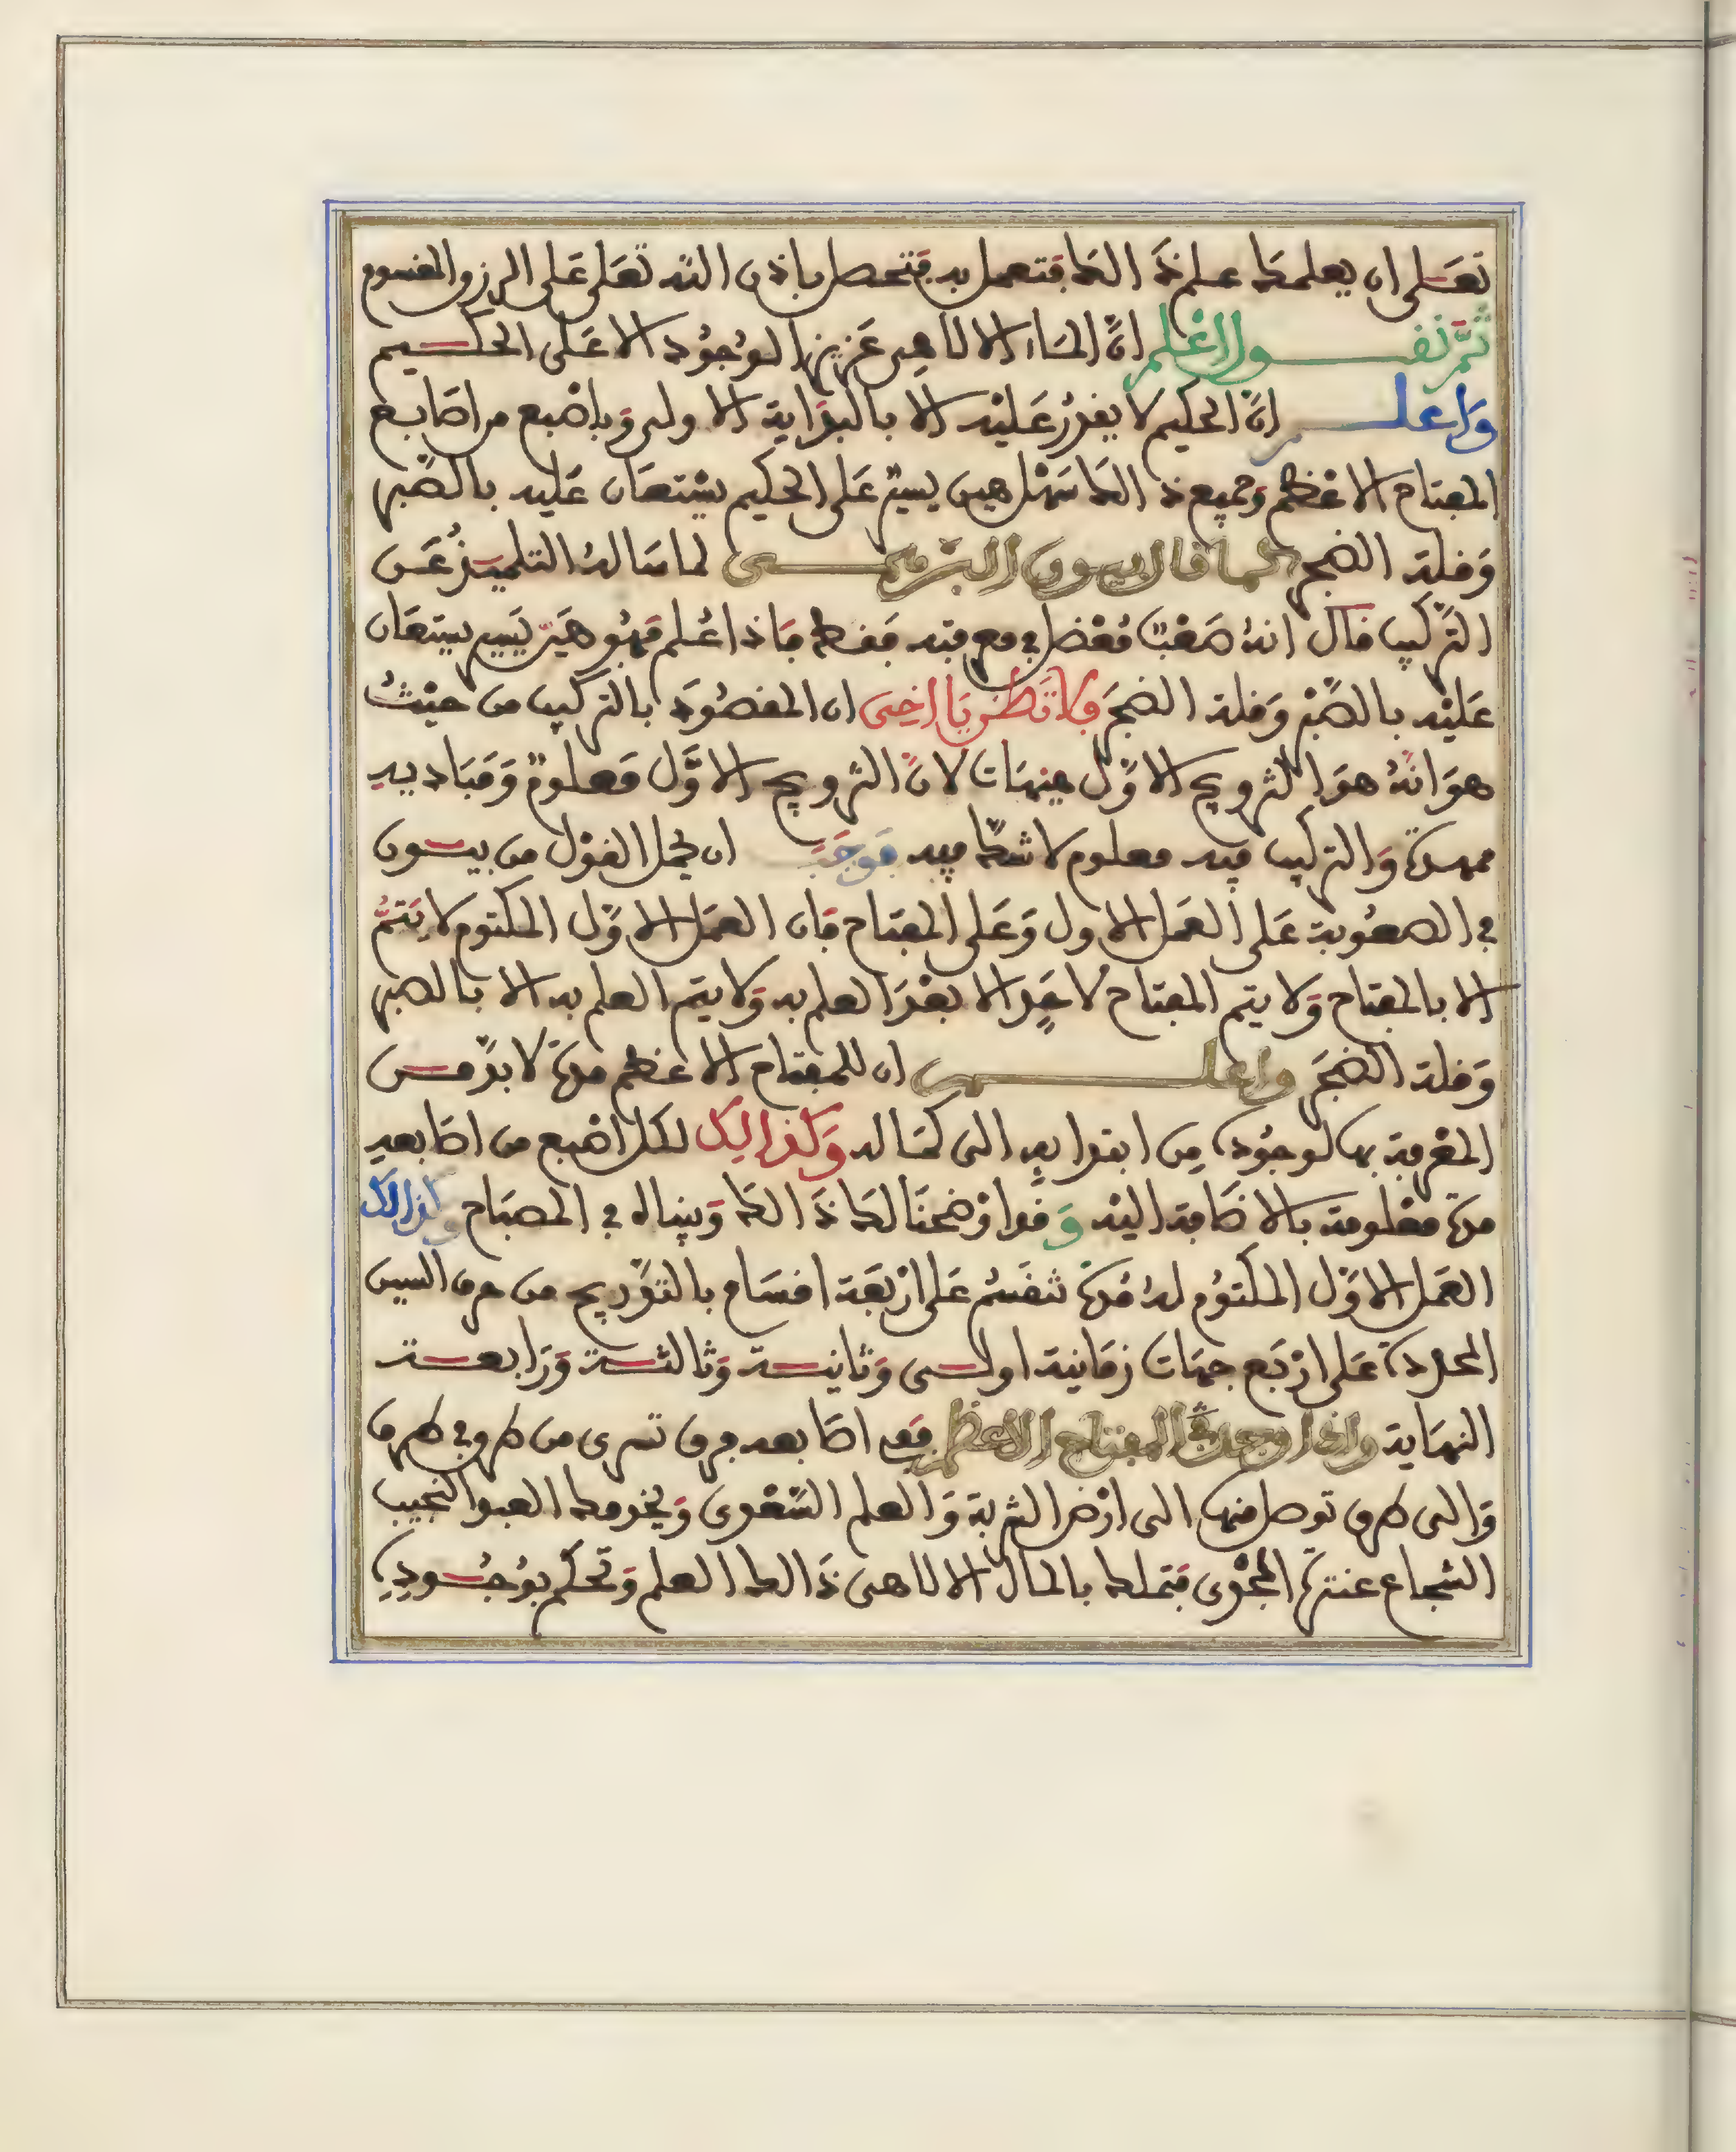 تعلى ان يعلمك علم ذالك فتعمل به فتحصل باذن الله تعلى على الرزق المقسوم
ثم نقول اعلم ان الماء الالاهى عزيز الوجود الا على الحكيم
واعلم ان الحكيم لا يقدر عليه الا بالبداية الاولى وباصبع من اصابع
المفتاح الاعظم وجميع ذالك سهل هين يسير على الحكيم يستعان عليه بالصبر
وقلة الضجر كما قال بيون البرهمى لما ساله التلميذ عن
التركيب فقال انه صعب معضل في معرفته فقط فاذا علم فهو هين يسير يستعان
عليه بالصبر وقلة الضجر فلا تظن يا اخى ان المقصود بالتركيب من حيث
هو انه هو التزويج الاول هيهات لان التزويج الاول معلوم ومباديه
ممهدة والتركيب فيه معلوم لا شك فيه فوجب ان يحمل القول من بيون
في الصعوبة على العمل الاول وعلى المفتاح فان العمل الاول المكتوم لا يتم
الا بالمفتاح ولا يتم المفتاح لاحد الا بعد العلم به ولا يتم العلم به الا بالصبر
وقلة الضجر واعلم ان للمفتاح الاعظم مدة لا بد من
المعرفة بها لوجوده من ابتدايه الى كماله وكذالك لكل اصبع من اصابعه
مدة معلومة بالاضافة اليه وقد اوضحنا لك ذالك وبيناه في المصباح وكذالك
العمل الاول المكتوم له مدة تنقسم على اربعة اقسام بالتدريج من حرف السين
المحدودة على اربع جهات زمانية اولى وثانية وثالثة ورابعة
النهاية واذا وجدت المفتاح الاعظم فعد اصابعه فهى تسرى من طرف في طرف
والى طرف توصل منها الى ارض التربة والعلم الشعرى ويخدمك العبد النجيب
الشجاع عنترة فتملك بالمال الالاهى ذالك العلم وتحكم بوجوده